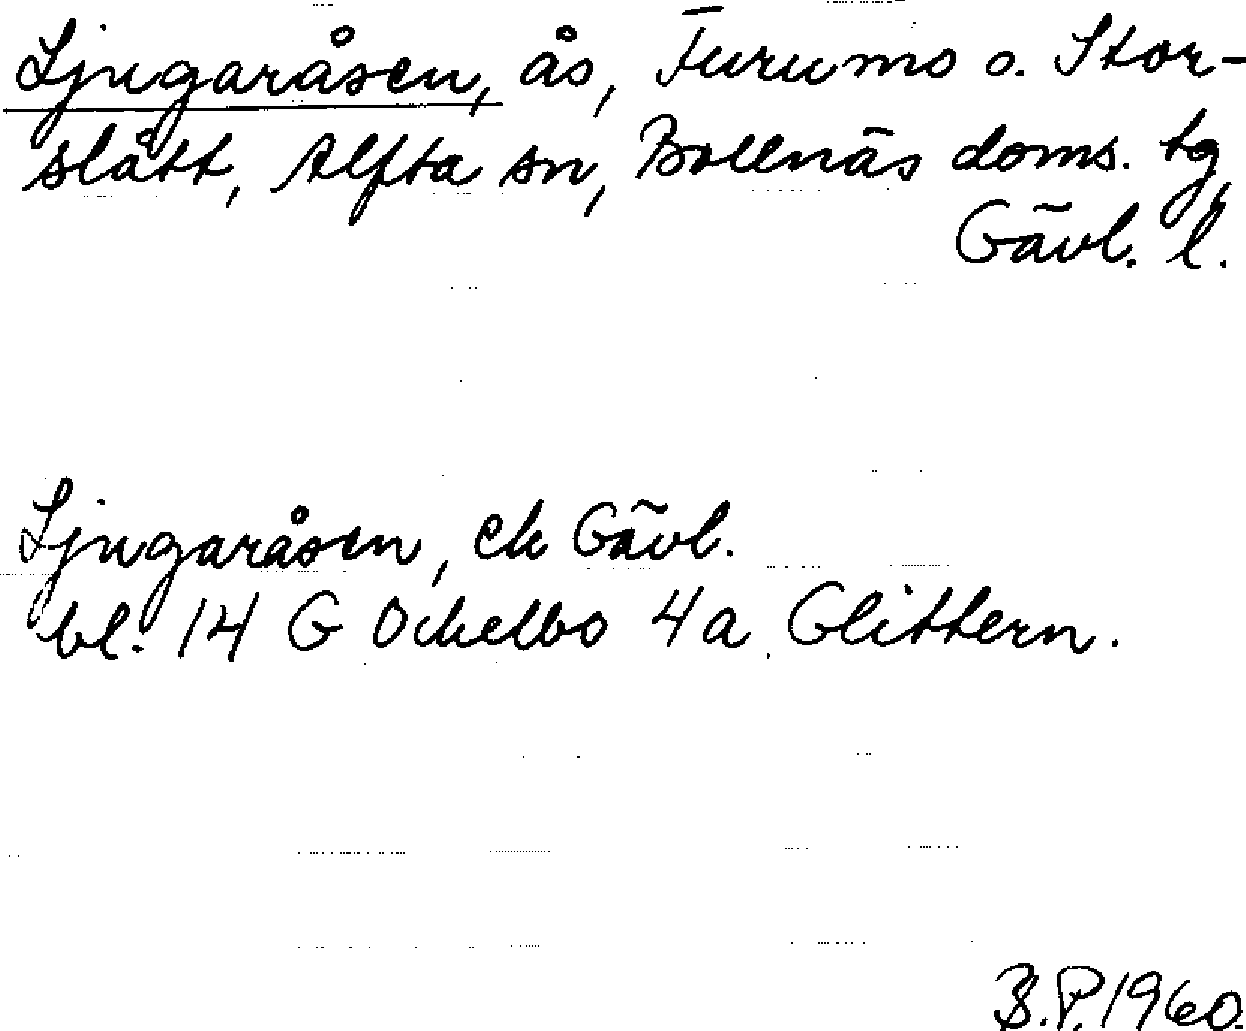 Ljugaråsen, ås, Furumo o. Stor-
slått, Alfta sn, Bollnäs doms. tg,
Gävl. l.
Ljugaråsen, ek Gävl.
bl. 14 G Ockelbo 4a Glittern.
B.P. 1960